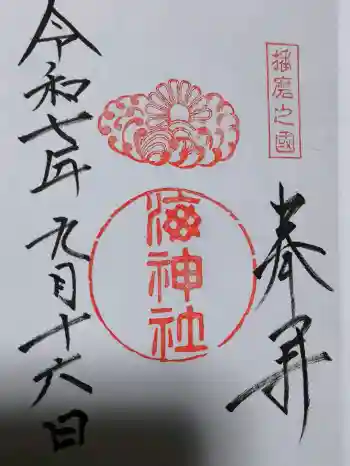 播磨之國
奉拝
海神社
令和七年九月十六日